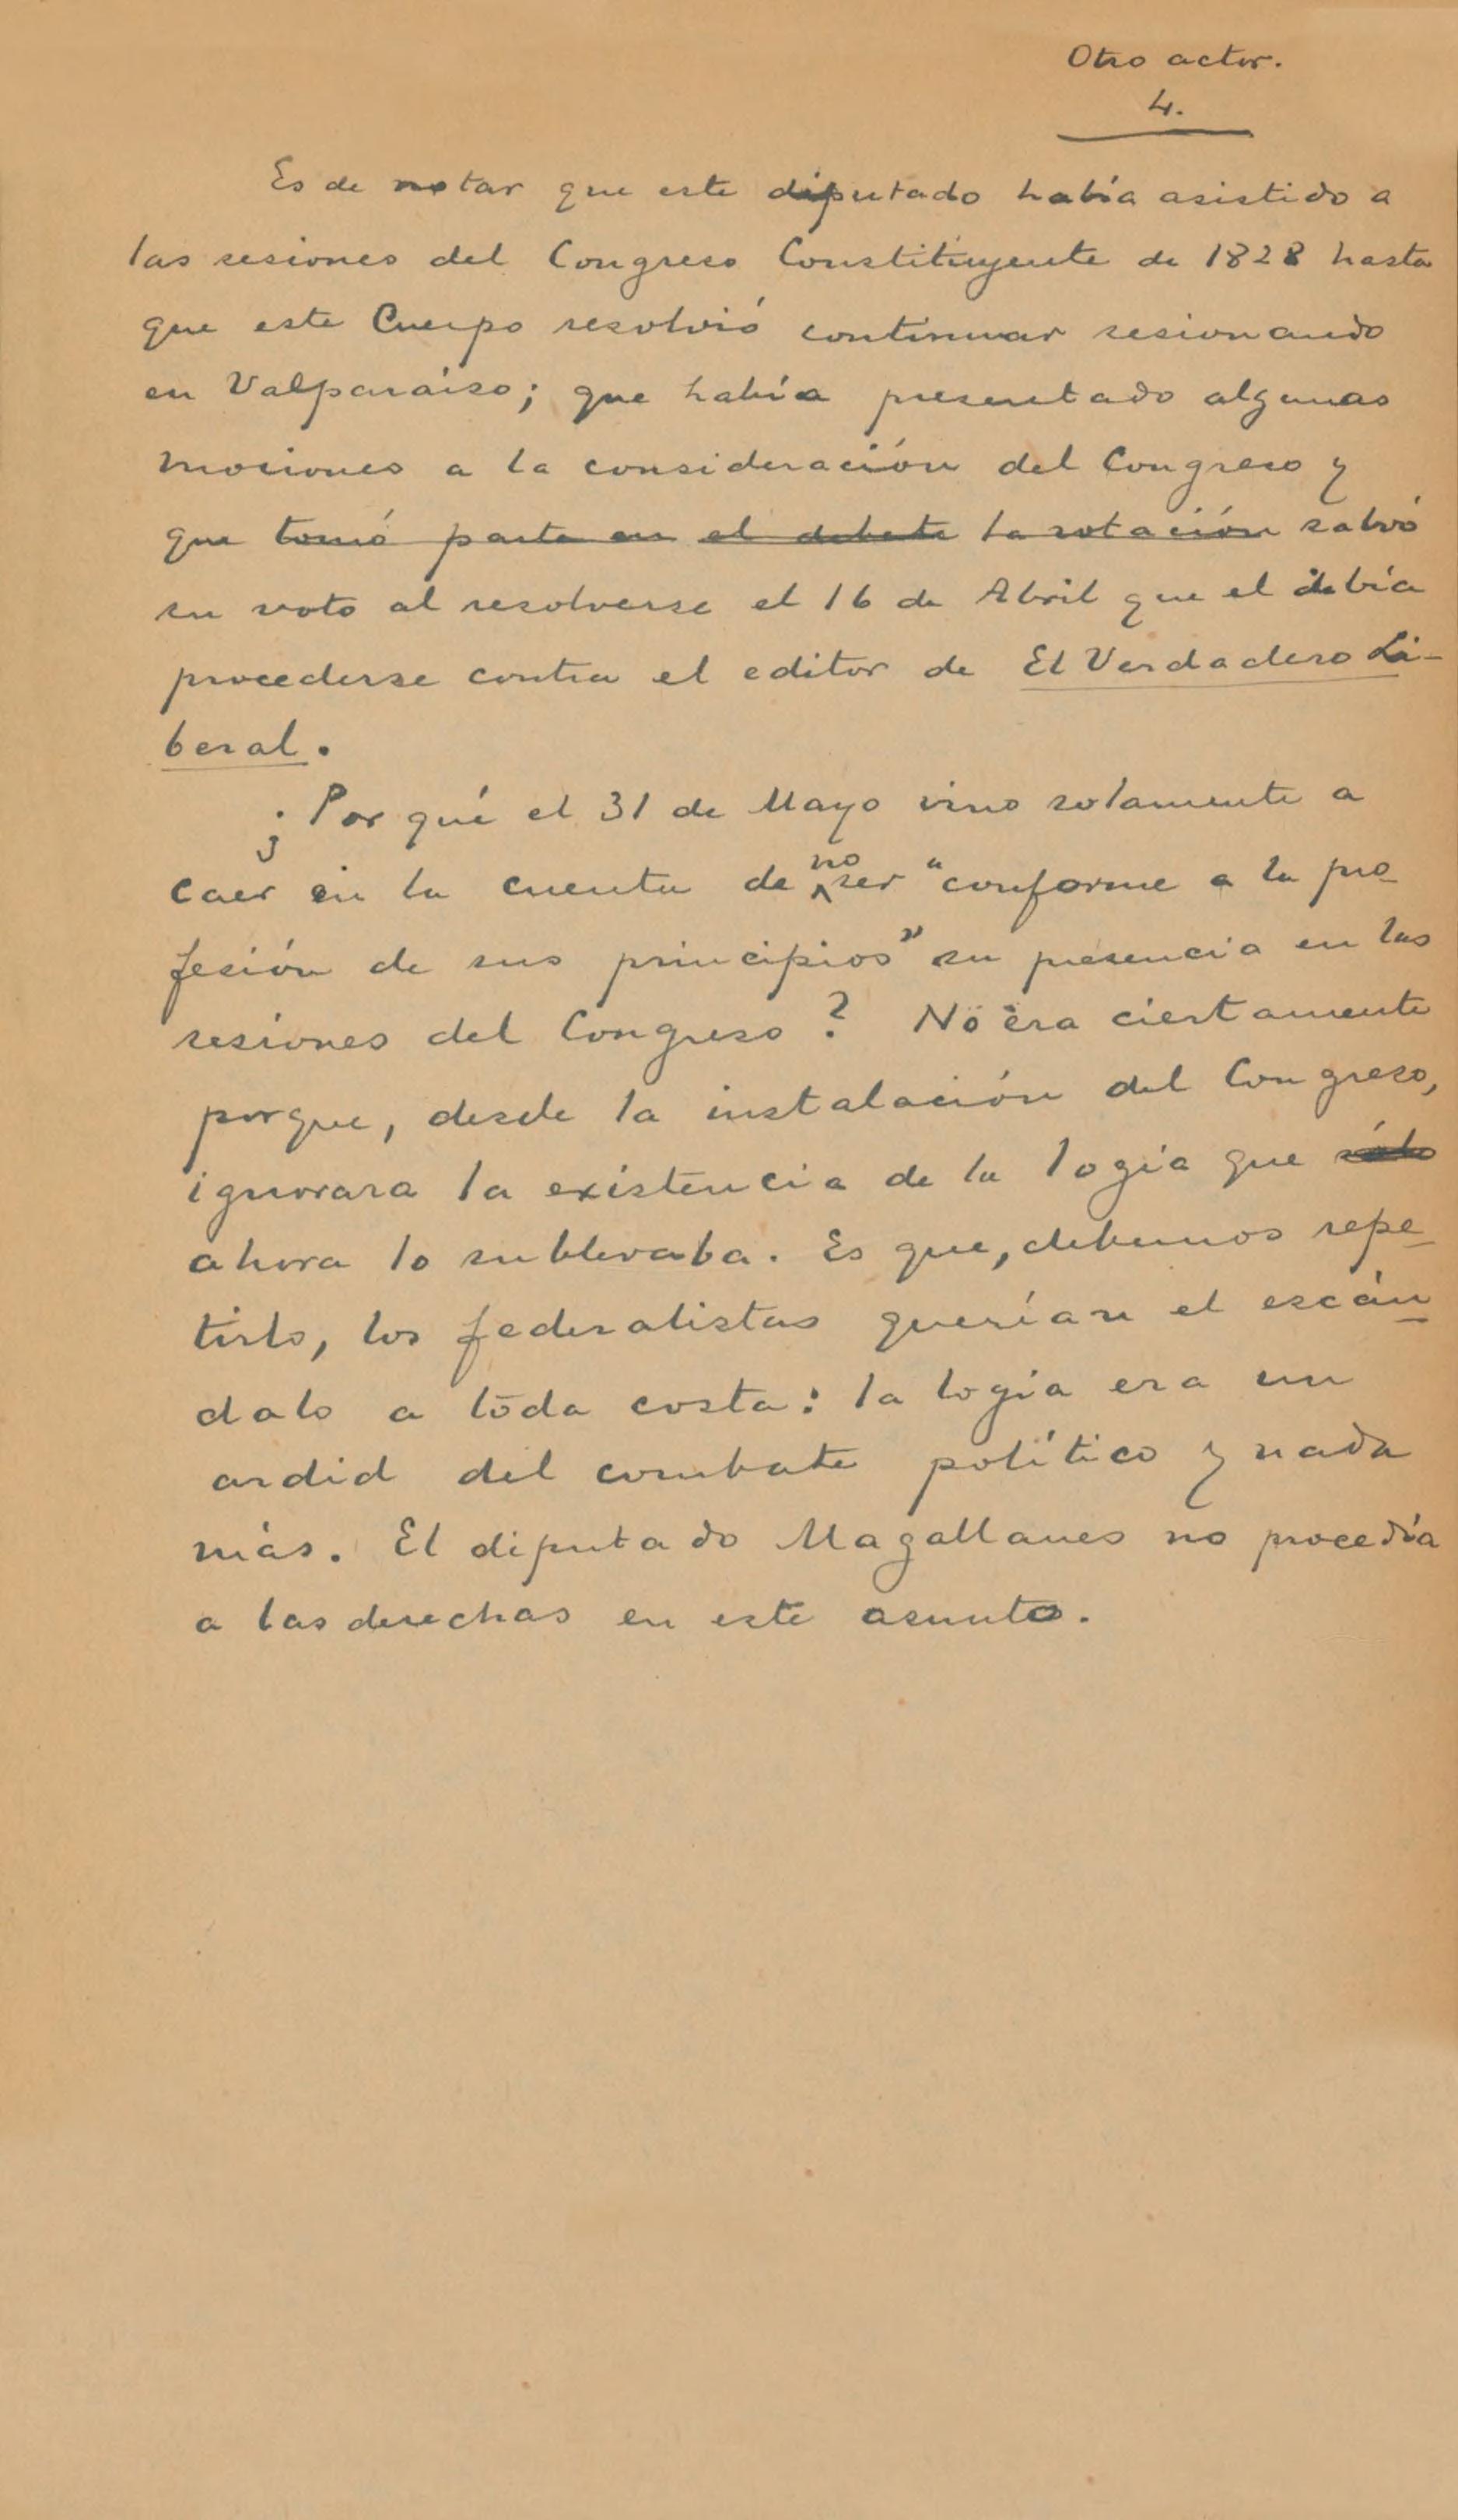 Otro actor.
4.
Es de notar que este diputado había asistido a
las sesiones del Congreso Constituyente de 1828 hasta
que este Cuerpo resolvió continuar sesionando
en Valparaíso; que había presentado algunas
mociones a la consideración del Congreso y
que tomó parte en el debate la votación salvó
su voto al resolverse el 16 de Abril que el debía
procederse contra el editor de El Verdadero Li-
beral.
¿Por qué el 31 de Mayo vino solamente a
caer en la cuenta de no ser "conforme a la pro
fesión de sus principios" su presencia en las
sesiones del Congreso? No era ciertamente
porque, desde la instalación del Congreso,
ignorara la existencia de la logia que sólo
ahora lo sublevaba. Es que, debemos repe
tirlo, los federalistas querían el escán
dalo a toda costa: la logia era un
ardid del combate político y nada
más. El diputado Magallanes no procedía
a las derechas en este asunto.